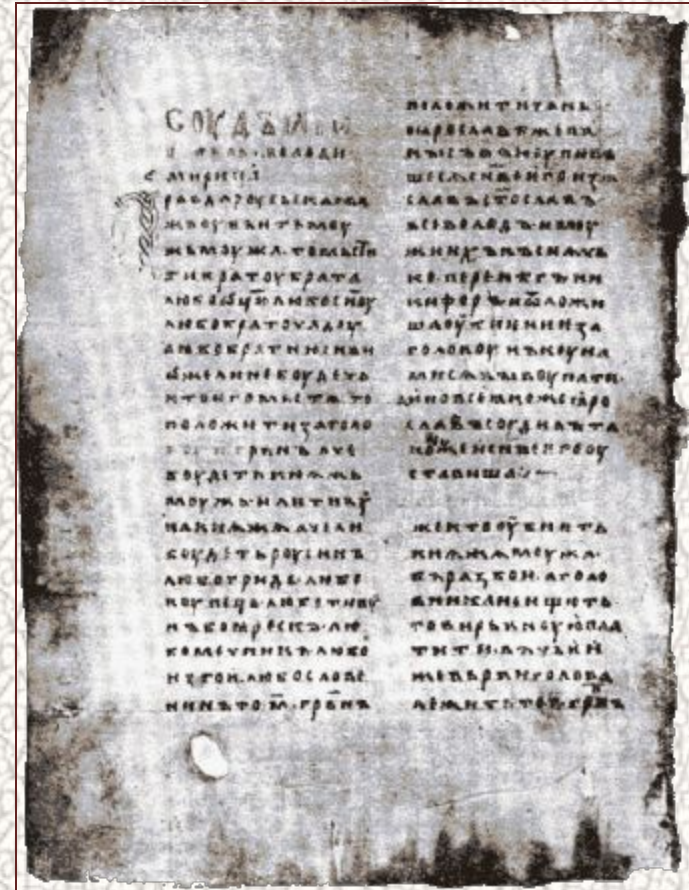 соудъ ꙗро
володи
мирица
равда роусьскаꙗ
ажь оубиѥть моу
жь моужа. то мьсти
ти братоу брата
любо ѡцю любо сн҃оу
любо братоучадоу
любо братню сн҃ви
ѡже ли не боудеть
кто ѥго мьстѧ. то
положити за голо
гри҃нъ аче
боудеть кнѧжь
моужь или тивоу
на кнѧжа аче ли
боудеть роусинъ
любо гридь. любо
коупець. любо тивоу
нъ боꙗрескъ. лю
бо мечникъ. любо
изгои. любо слове
нинъ то м҃. гри҃нъ
положити за нь
по ꙗрославѣ же па
кы съвъкоупивъ
шесѧ сн҃ве ѥго изѧ
славъ ст҃ославъ
всеволодъ и моу
жи ихъ къснѧчь
ко. перенѣгъ ни
кифоръ и ѿложи
ша оубиѥниѥ за
головоу нъ коуна
ми сѧ выкоупати.
а ино все ꙗко же ꙗро
славъ соудилъ та
ко же и сн҃ве ѥго оу
ставиша
же кто оубиѥть
кнѧжа моужа.
въ разбои. а голо
вника не ищють
то вирьвноую пла
тити. въ чьѥи
же вьрви голова
лежить то п҃. гри҃нъ